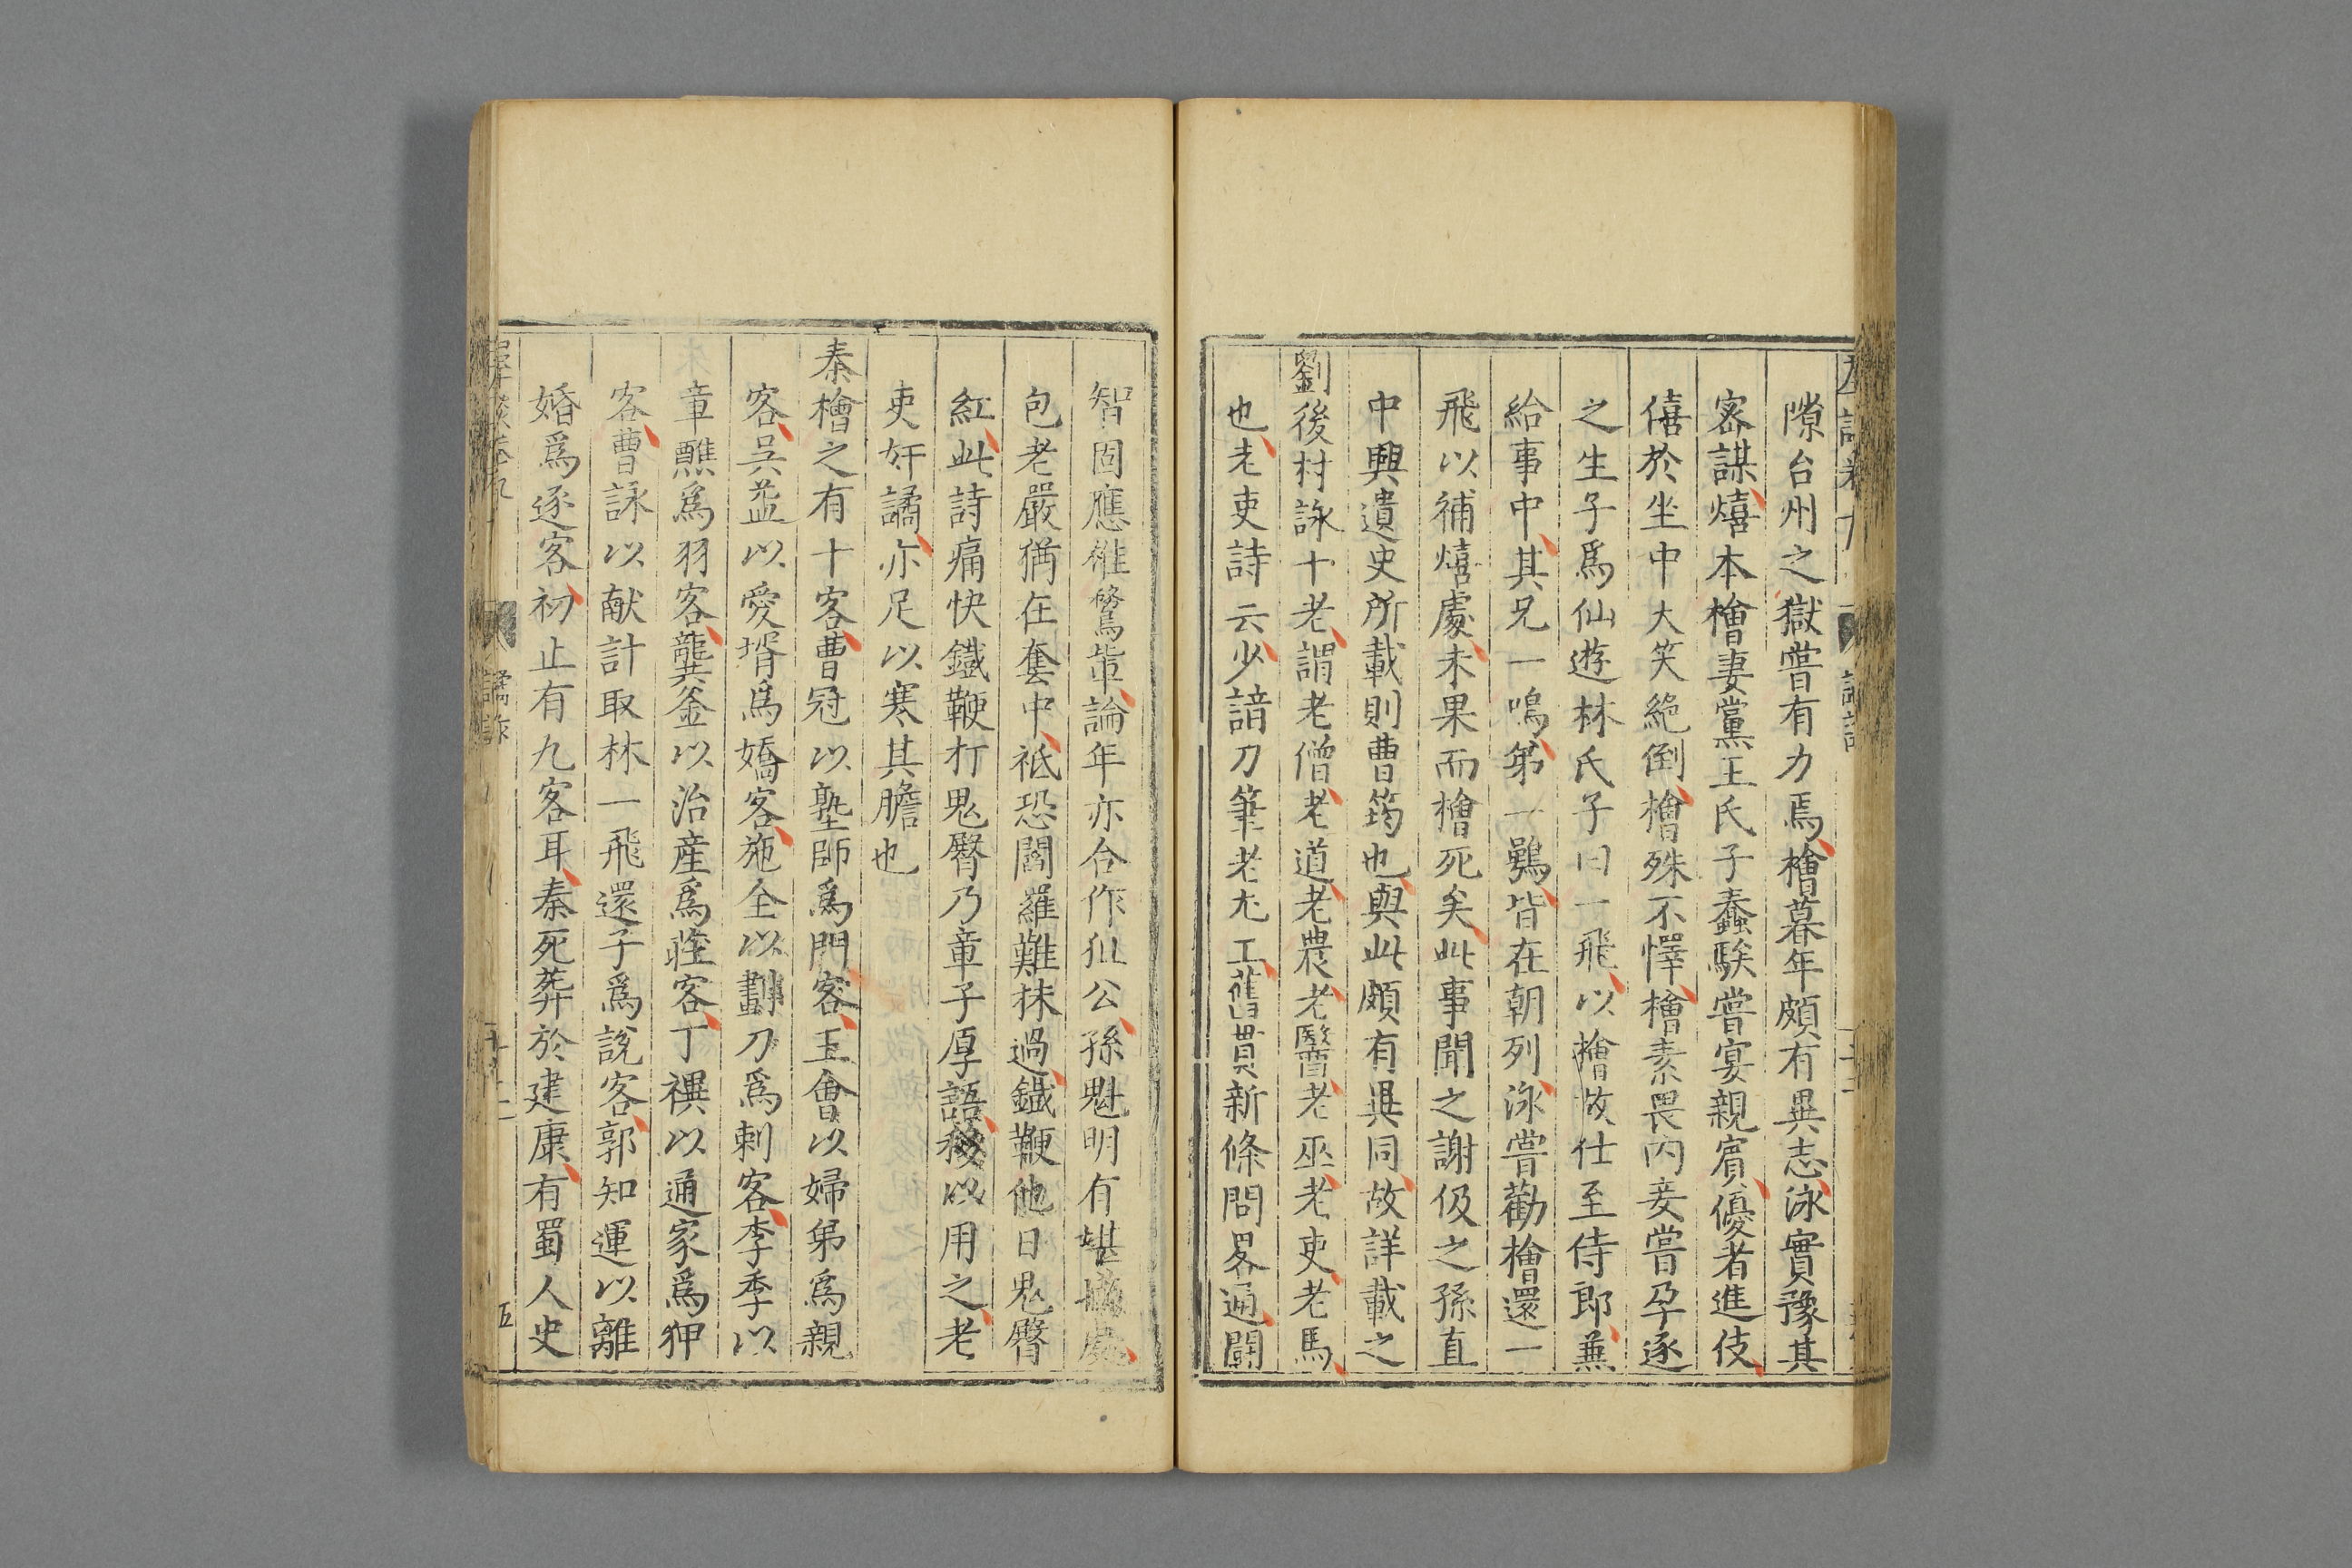 隙台州之獄嘗有力焉檜暮年頗有異志泳實豫其
密謀熺本檜妻黨王氏子蠢騃嘗宴親賓優者進伎
僖於坐中大笑絶倒檜殊不懌檜素畏内妾嘗孕逐
之生子爲仙遊林氏子曰一飛以檜故仕至侍郎兼
給事中其兄一鳴弟一鶚皆在朝列泳嘗勸檜還一
飛以補熺處未果而檜死矣此事聞之謝伋之孫直
中興遺史所載則曹筠也與此頗有異同故詳載之
劉後村詠十老謂老僧老道老農老醫老巫老吏老馬
也老吏詩云少諳刀筆老尤工舊貫新條問畧通鬭
智固應雄鶩輩論年亦合作狙公孫魁明有堪瞞處
包老嚴猶在套中祗恐閻羅難抹過鐵鞭他日鬼臀
紅此詩痛快鐵鞭打鬼臀乃章子厚語移以用之老
吏奸譎亦足以寒其膽也
秦檜之有十客曹冠以塾師爲門客王會以婦弟爲親
客吳益以愛壻爲嬌客施全以剚刀爲刺客李季以
章醮爲羽客龔釜以治産爲莊客丁禩以通家爲狎
客曹詠以献計取林一飛還子爲說客郭知運以離
婚爲逐客初止有九客耳秦死葬於建康有蜀人史